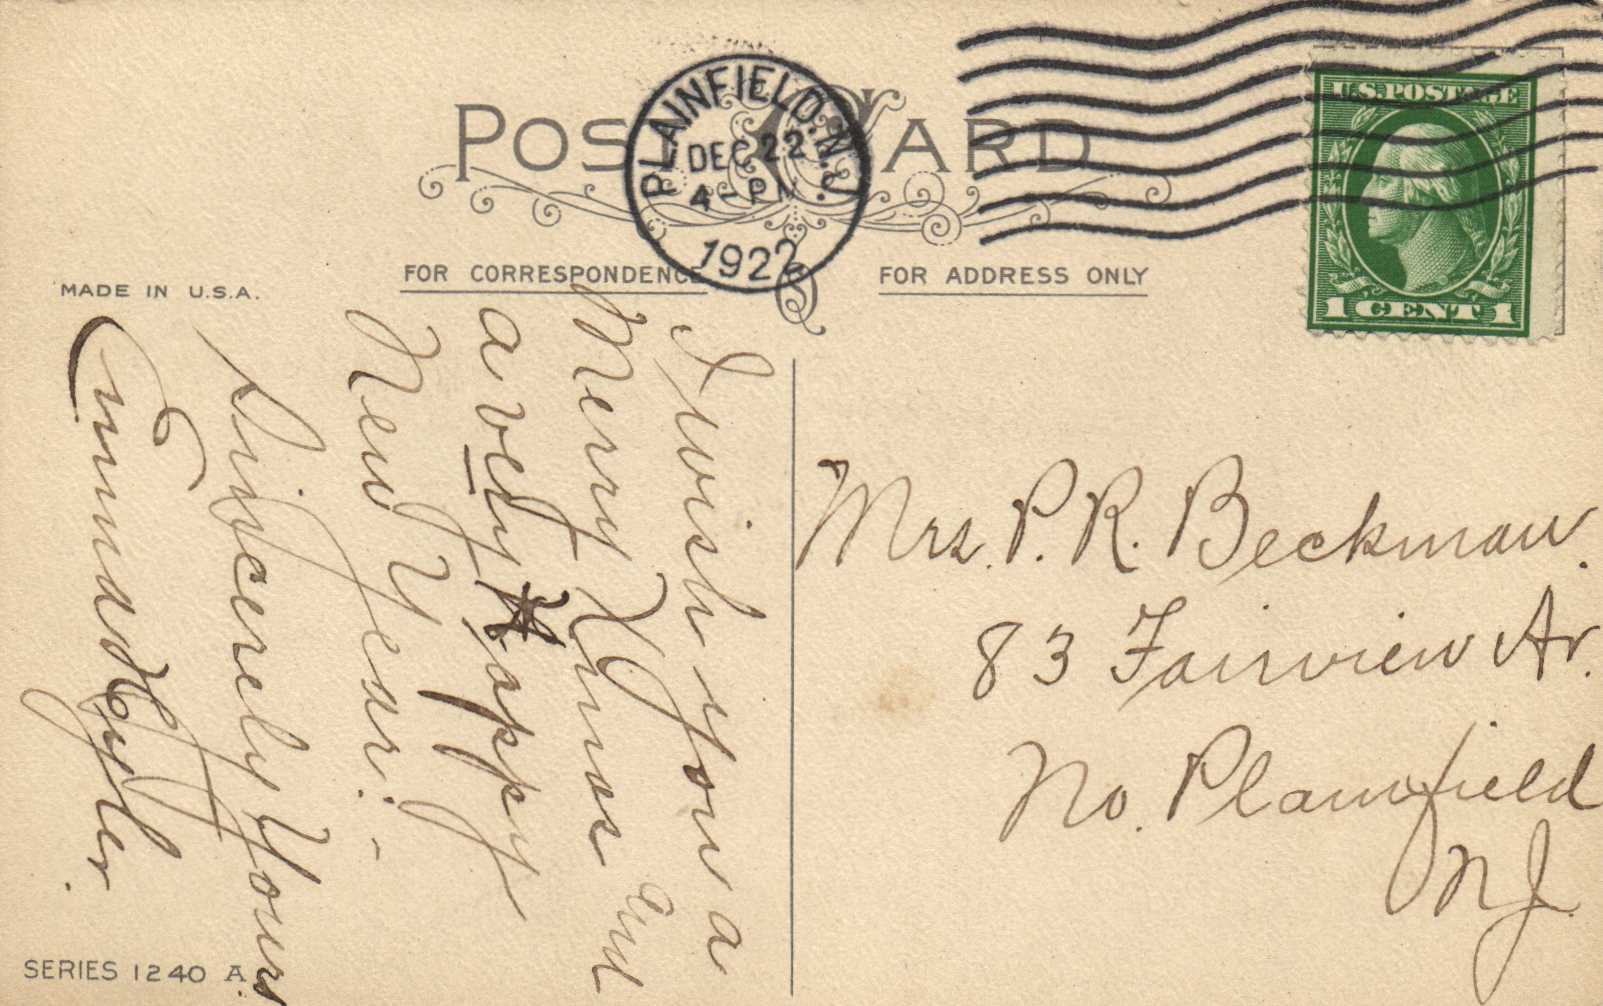 POST CARD
PLAINFIELD. N.J.
DEC 22
4 - PM
1922
U.S. POSTAGE
1 CENT 1
MADE IN U.S.A.
FOR CORRESPONDENCE
FOR ADDRESS ONLY
I wish you a
Merry Xmas and
a very Happy
New Year. -
Sincerely Yours
Emma
Mrs. P. R. Beekman.
83 Fairview Av.
No. Plainfield
N J.
SERIES 1240 A